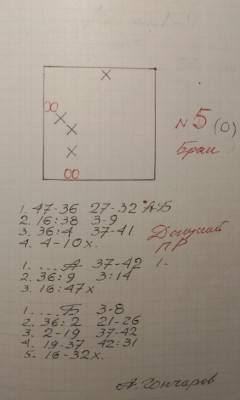 №5 (0)
Брак
1. 47-36 27-32 *А.Б
2. 16:38 3-9
3. 36:4 37-41
4. 4-10х.
ПР
1. .... А 37-42 1-
2. 36:9 3:14
3. 16:47х
1. .... Б 3-8
2. 36:2 21-26
3. 2-19 37-42
4. 19-37 42:31
5. 16-32х.
А. Гончаров